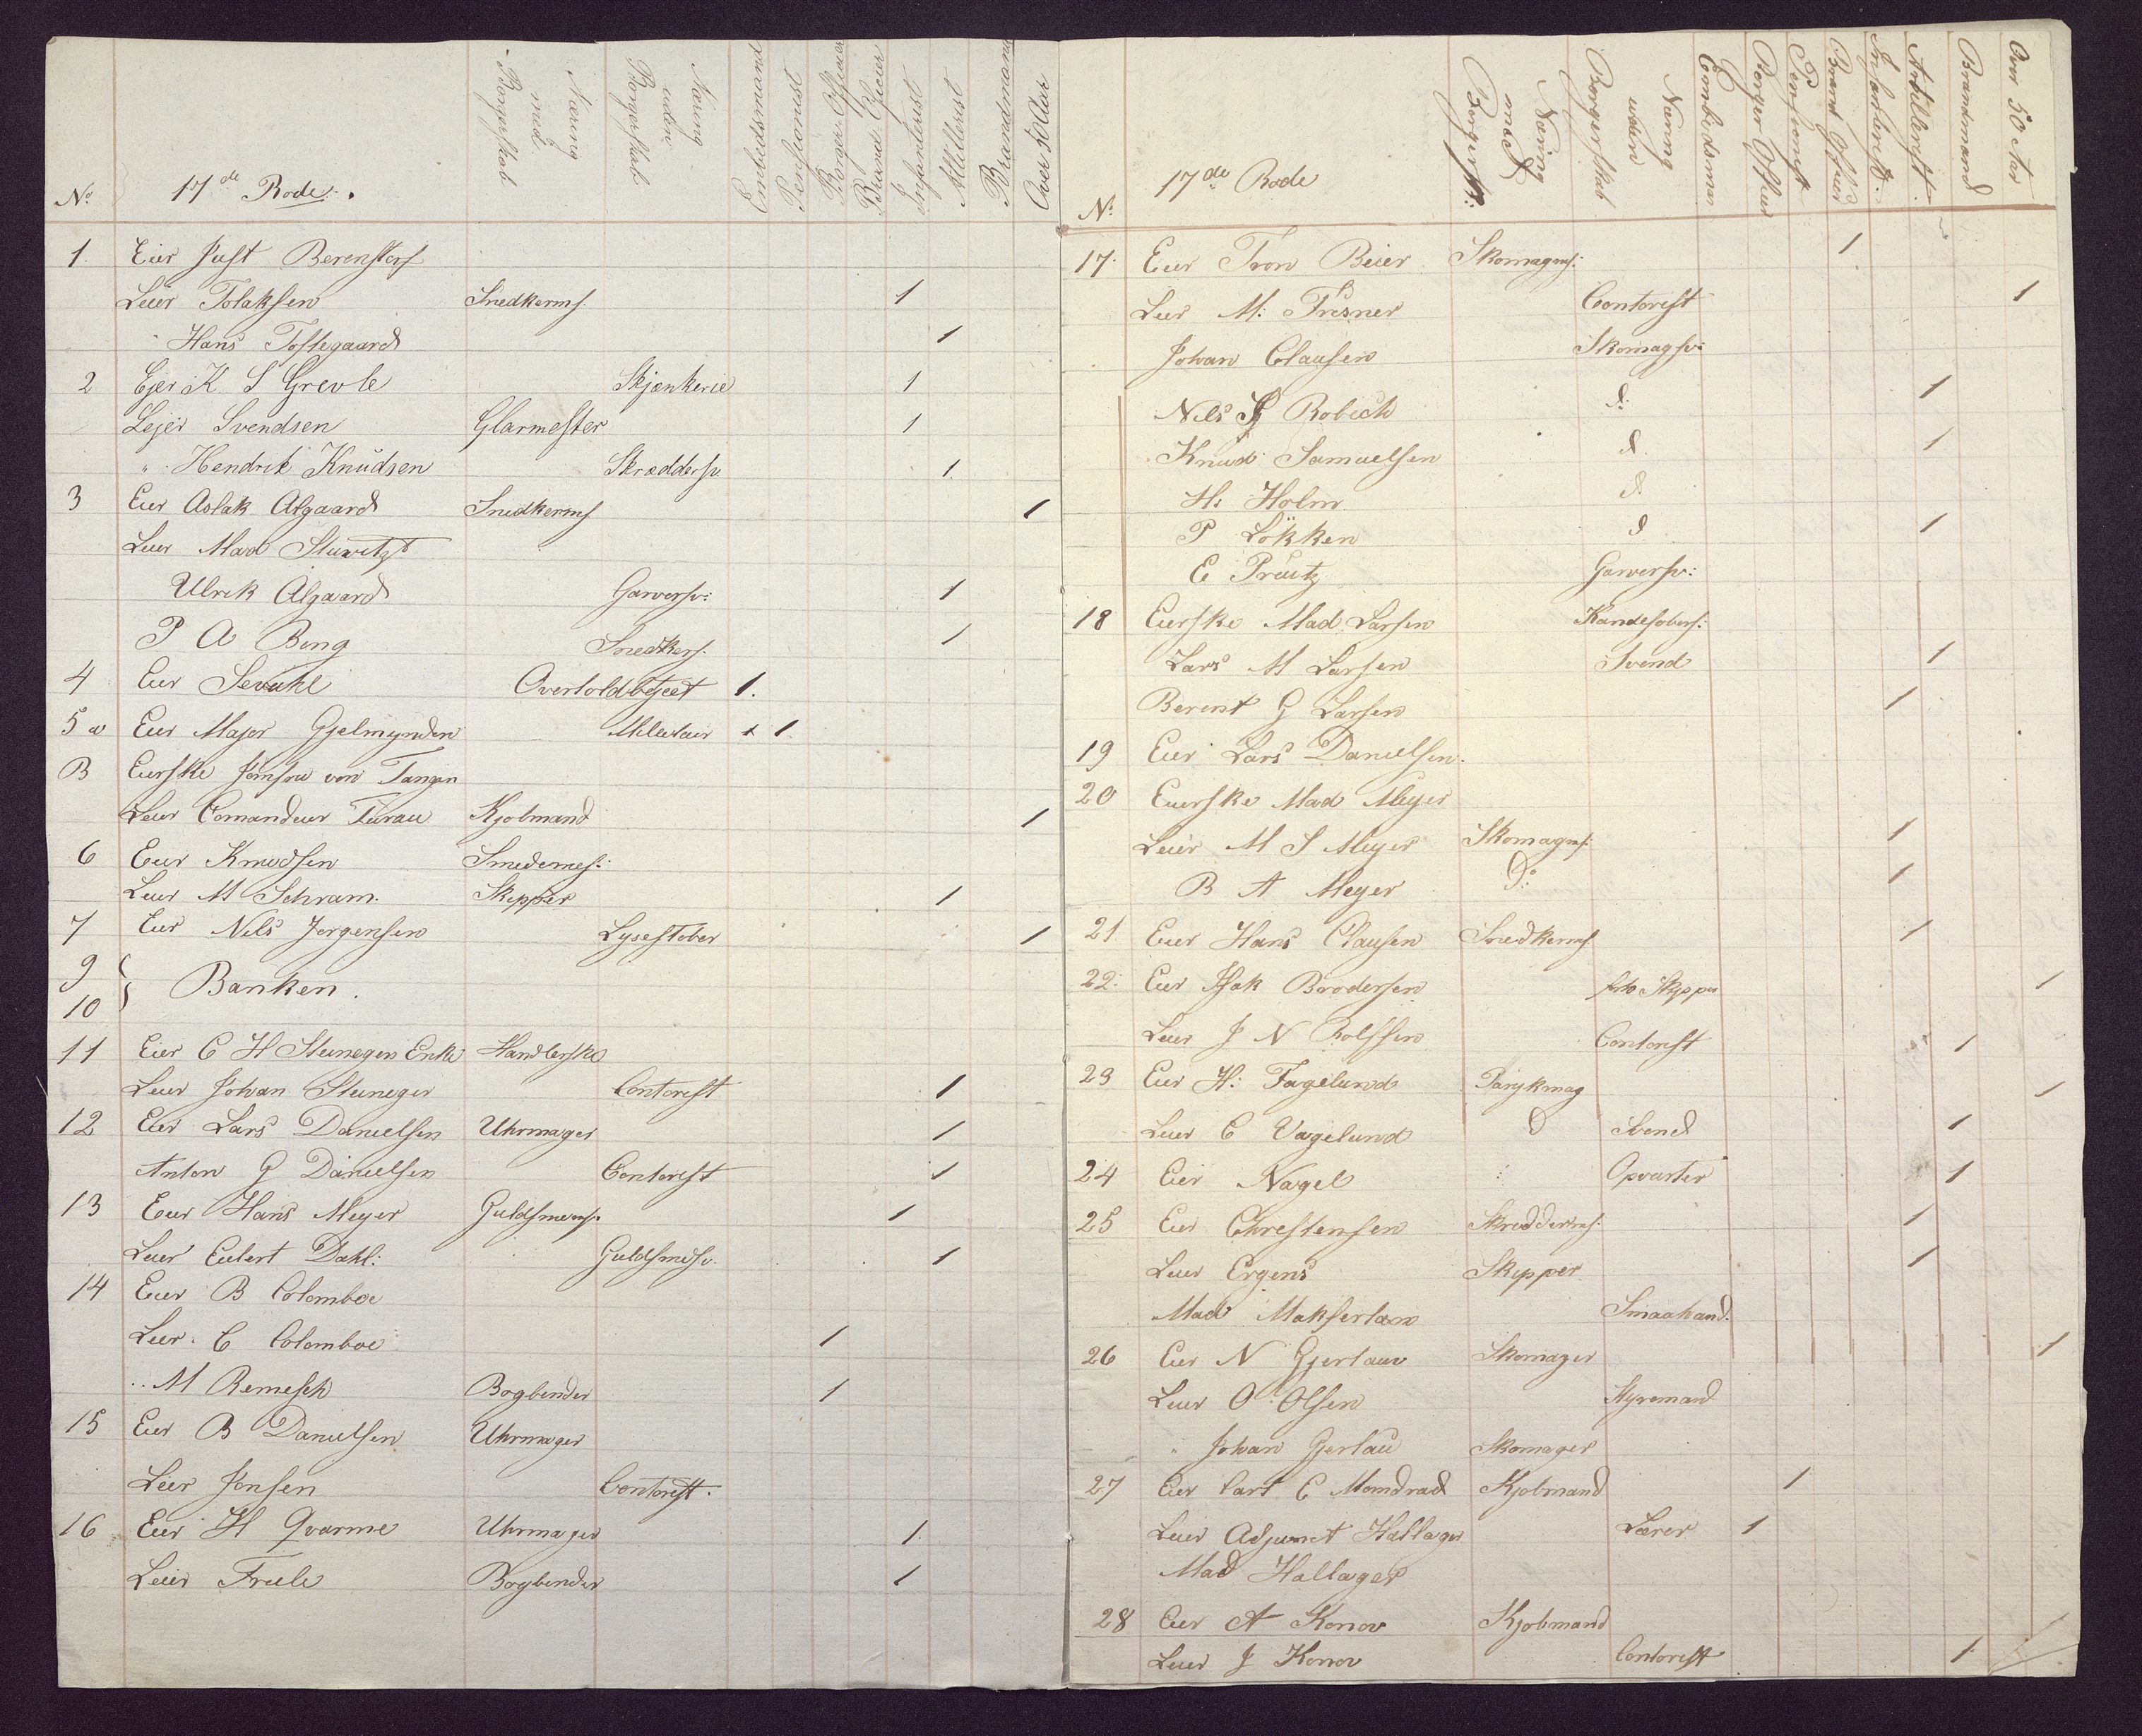 No. 17de Rode. Næring med Borgerskab Næring uden Borgerskab Embedsmand Pensjonist Borger Officier Brand Officier Infanterist Artillerist Brandmand Over 50 Aar
1. Eier Just Berenstorf
Leier Tolaksen Snedkerms. 1
" Hans Tostegaard 1
2 Ejer K. S Grevle Skjænkerie 1
Lejer Svendsen Glarmester 1
" Hendrik Knudsen Skræddersv. 1.
3 Eier Aslak Algaard Snedkerms 1
Leier Mad Stuwitz
Ulrik Algaard Garversv: 1
P A Bing Snedkers. 1
4 Eier Seruhl Overtoldbetjeet 1.
5 a Eier Major Gjelmynden Militair x 1.
B Eierske Jomfru von Tangen
Leier Comandeur Turau Kjobmand 1
6 Eier Knudsen Smedemes:
Leier M Schram. Skipper 1
7 Eier Nils Jorgensen Lysestober 1
9
10 } Banken.
11 Eier C H Steineger Enke Handlerske
Leier Johan Steineger Contorist 1
12 Eier Lars Danielsen Uhrmager 1
Anton G Danielsen Contorist 1
13 Eier Hans Meyer Guldsmems. 1
Leier Eilert Dahl: Guldsmdsv. 1
14 Eier B Colomboe
Leier. C Colomboe 1
" M Remesch Bogbinder 1
15 Eier B Danielsen Uhrmager
Leier Jonsen Contorist.
16 Eier H Qvarme Uhrmager 1.
Leier Friele Bogbinder 1
N: 17de Rode Næring med Borgersk: Næring uden Borgerskab Embedsmen Borger Officier Pensionist Brand Officier Infanterist. Artillerist. Brandmand Over 50 Aar
17. Eier Tron Beier Skomagms: 1
Leier M: Fresner Contorist 1
Johan Clausen Skomagsv:
Nils G Robich d: 1
Knud Samuelsen d. 1
H: Holm d
P Lökken d 1
E Preutz Garversv:
18 Eierske Mad Larsen Kandestobers:
Lars M Larsen Svend 1
Berent G Larsen 1
19 Eier Lars Danielsen.
20 Eierske Mad Meyer
Leier M S Meyer Skomagms: 1
B A Meyer Do: 1
21 Eier Hans Clausen Snedkerms 1
22. Eier Isak Brodersen Skipper 1
Leier J N Rolfsen Contorist 1
23 Eier H: Fagelund Parykmag 1
Leier C Vagelund d Svend 1
24 Eier Nagel Opvarter 1
25 Eier Christensen Skredderms. 1
Leier Ergens Skipper 1
Mad Makferlan Smaahand.
26 Eier N Gjertau Skomager 1
Leier O Olsen Styremand
" Johan Gjertau Skomager
27 Eier Cart C Momdrad Kjobmand 1
Leier Adjunct Hallager Lærer 1
Mad Hallager
28 Eier A Konov Kjobmand
Leier J Konov Contorist 1